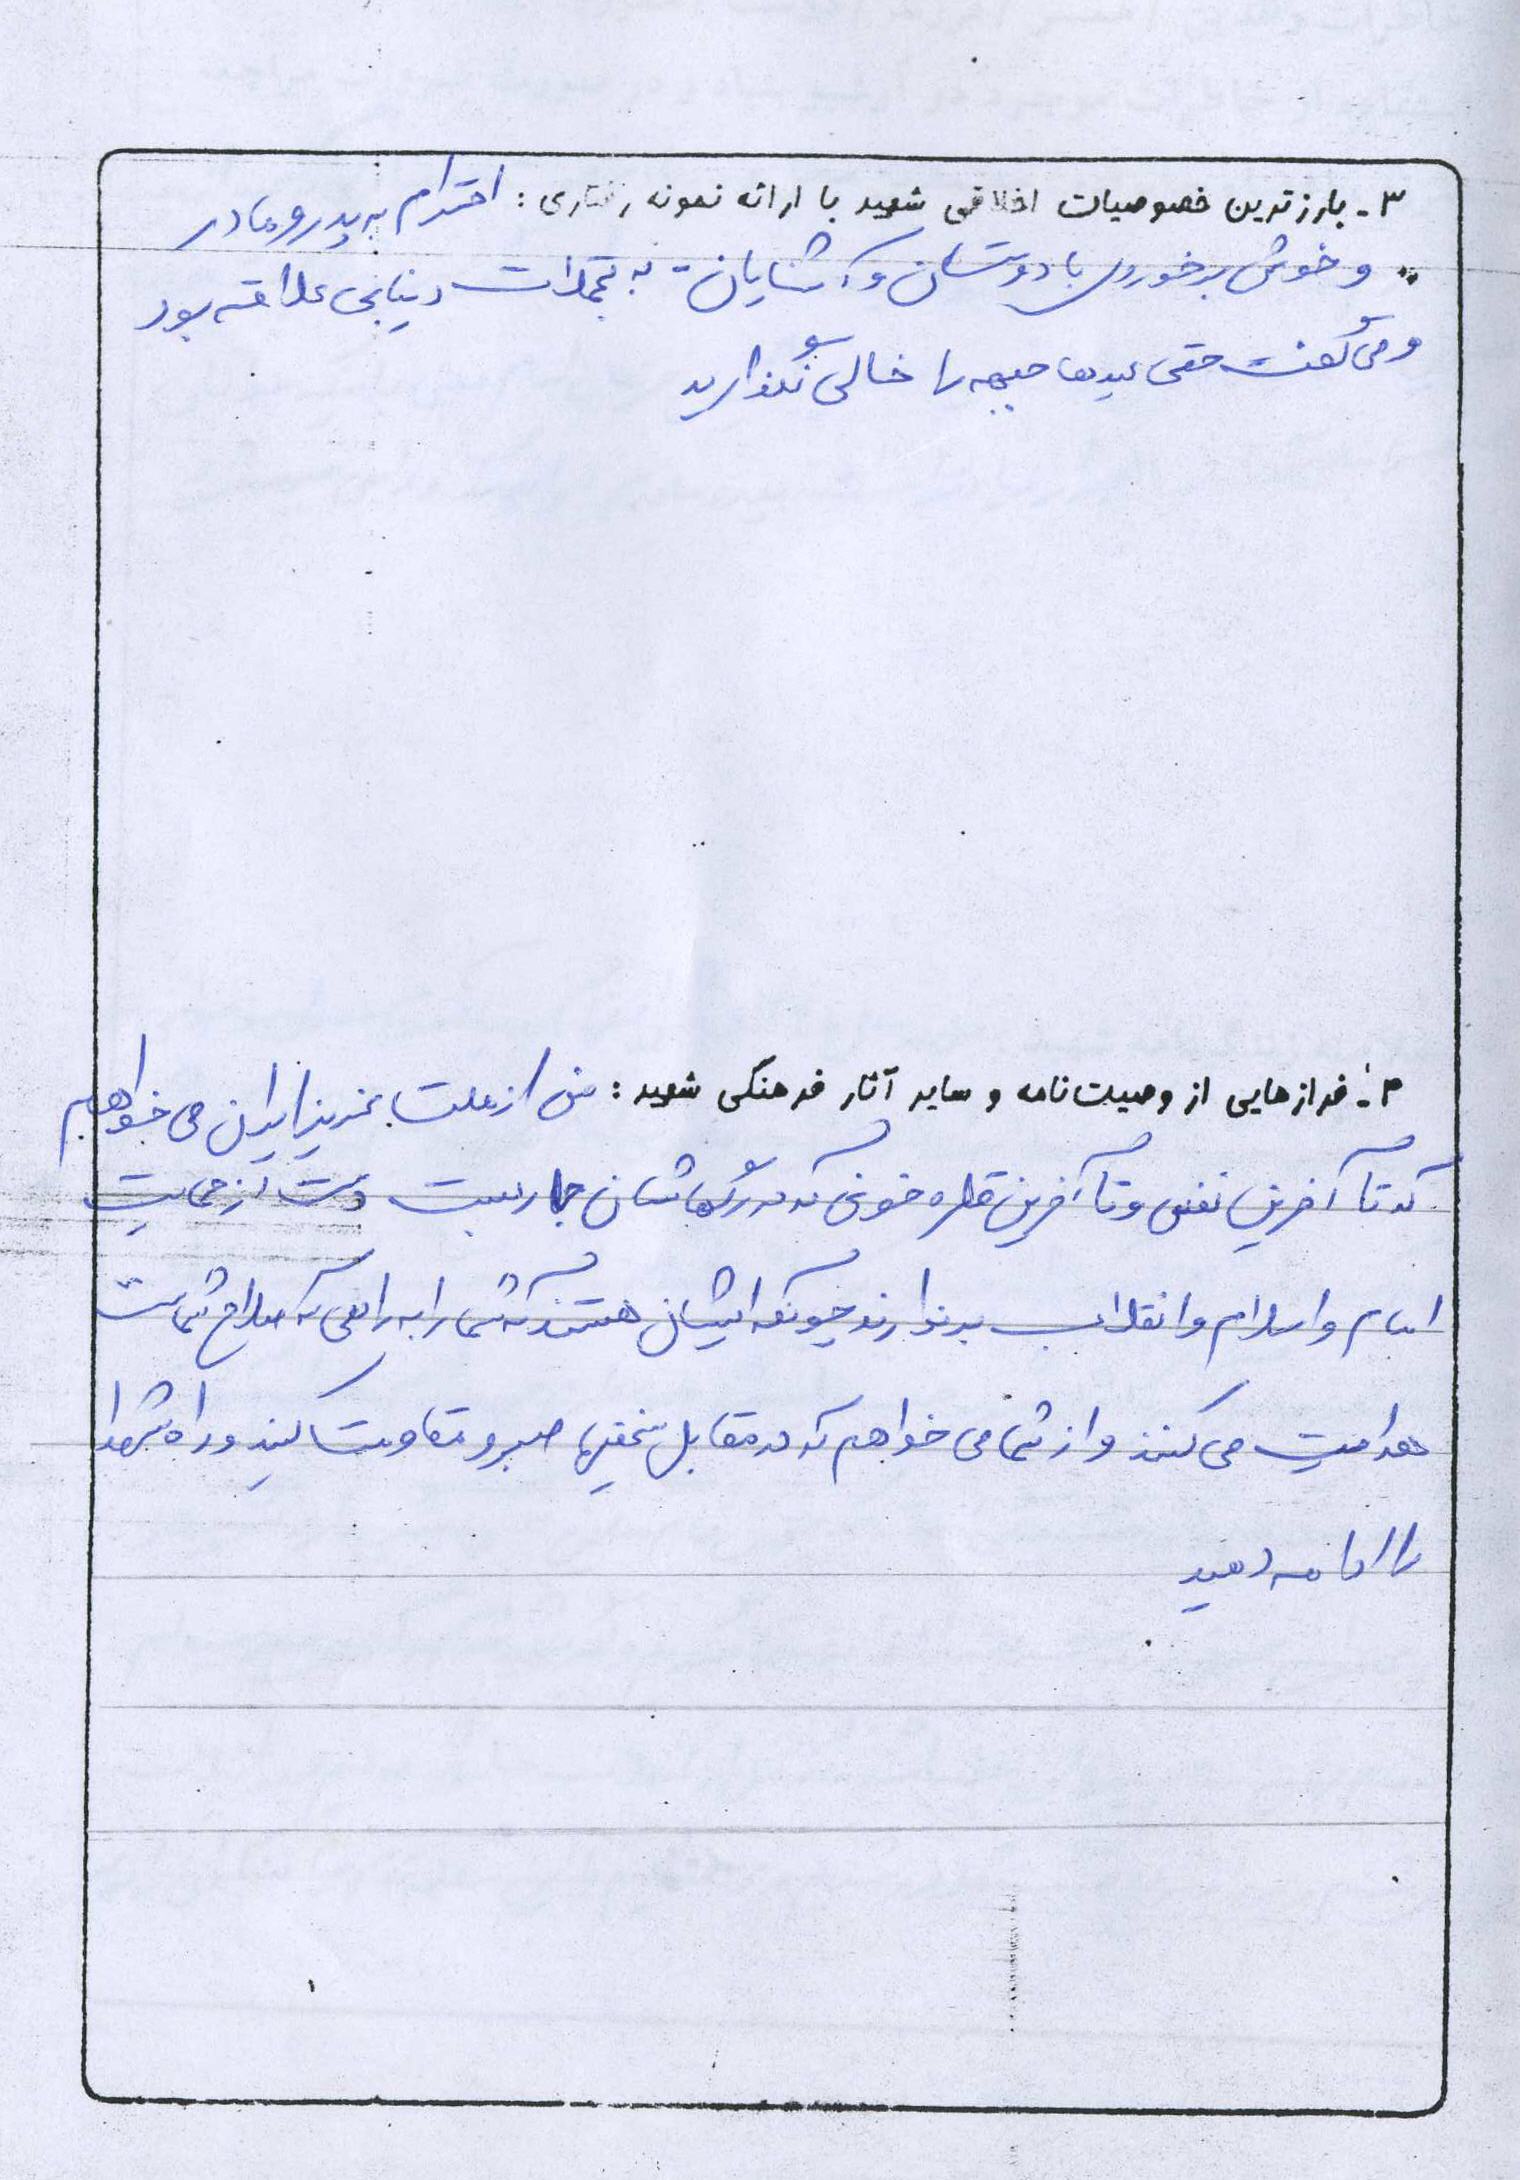 ۳ـ بارزترین خصوصیات اخلاقی شهید با ارائه نمونه رفتاری : احترام به پدر و مادر
و خوش برخوردی با دوستان و آشنایان - به تجملات دنیا بی علاقه بود
و می گفت حتی عیدها جبهه را خالی نگذارید
۴ـ فرازهایی از وصیت‌نامه و سایر آثار فرهنگی شهید : من از ملت عزیز ایران می خواهم
که تا آخرین نفس و تا آخرین قطره خونی که در رگهاشان جاریست دست از حمایت
امام و اسلام و انقلاب برندارند چونکه ایشان هستند که شما را به راهی که صلاح شماست
هدایت می کنند و از شما می خواهم که در مقابل سختیها صبر و مقاومت کنید و راه شهدا
را ادامه دهید